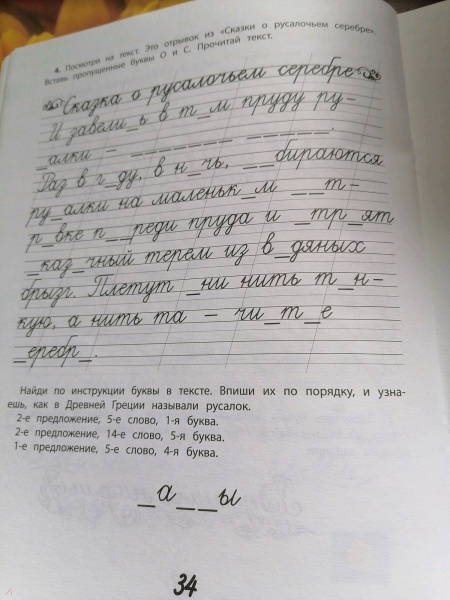 4. Посмотри на текст. Это отрывок из «Сказки о русалочьем серебре».
Вставь пропущенные буквы О и С. Прочитай текст.
Сказка о русалочьем серебре
И завели_ь в т_м пруду ру-
_алки – _ _ _ _ _ _ _ _ _ _ _ _ _.
Раз в г_ду, в н_чь, _ _бираются
ру_алки на маленьк_м _ _т-
р_вке п_ _реди пруда и _тр_ят
_каз_чный терем из в_дяных
брызг. Плетут _ни нить т_н-
кую, а нить та – чи_т_е
_еребр_.
Найди по инструкции буквы в тексте. Впиши их по порядку, и узна-
ешь, как в Древней Греции называли русалок.
2-е предложение, 5-е слово, 1-я буква.
2-е предложение, 14-е слово, 5-я буква.
1-е предложение, 5-е слово, 4-я буква.
_а_ _ы
34